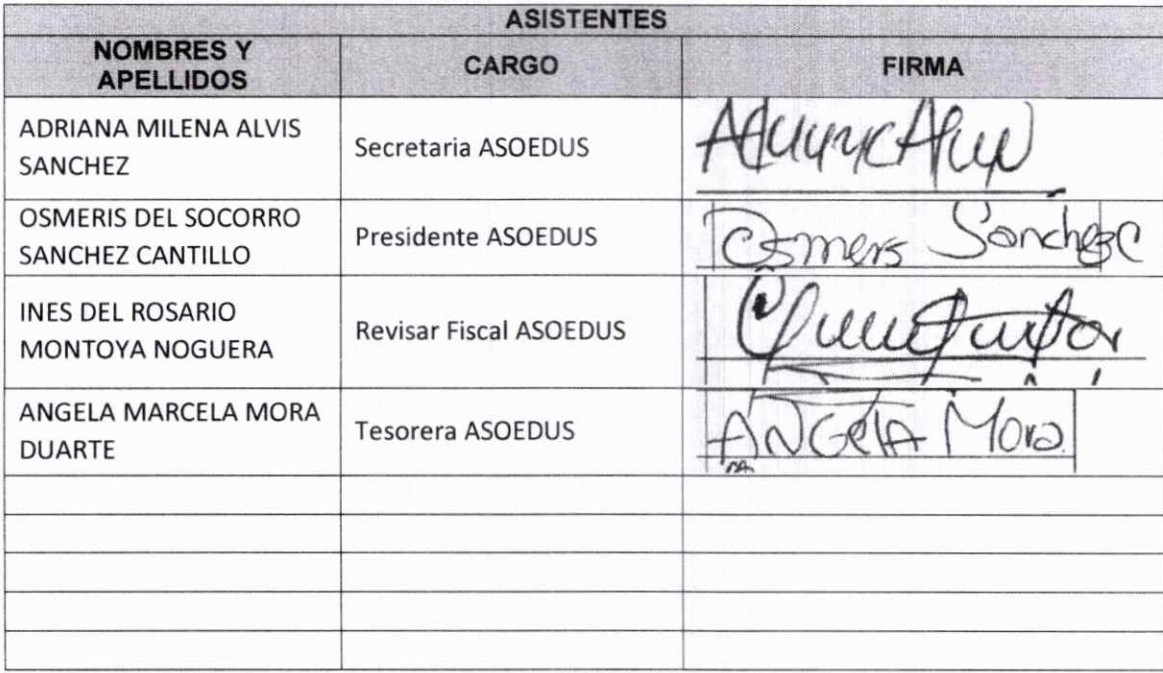 ASISTENTES
NOMBRES Y
APELLIDOS
CARGO
FIRMA
ADRIANA MILENA ALVIS
SANCHEZ
Secretaria ASOEDUS
OSMERIS DEL SOCORRO
SANCHEZ CANTILLO
Presidente ASOEDUS
Osmeris Sanchez C
INES DEL ROSARIO
MONTOYA NOGUERA
Revisar Fiscal ASOEDUS
ANGELA MARCELA MORA
DUARTE
Tesorera ASOEDUS
ANGELA Mora